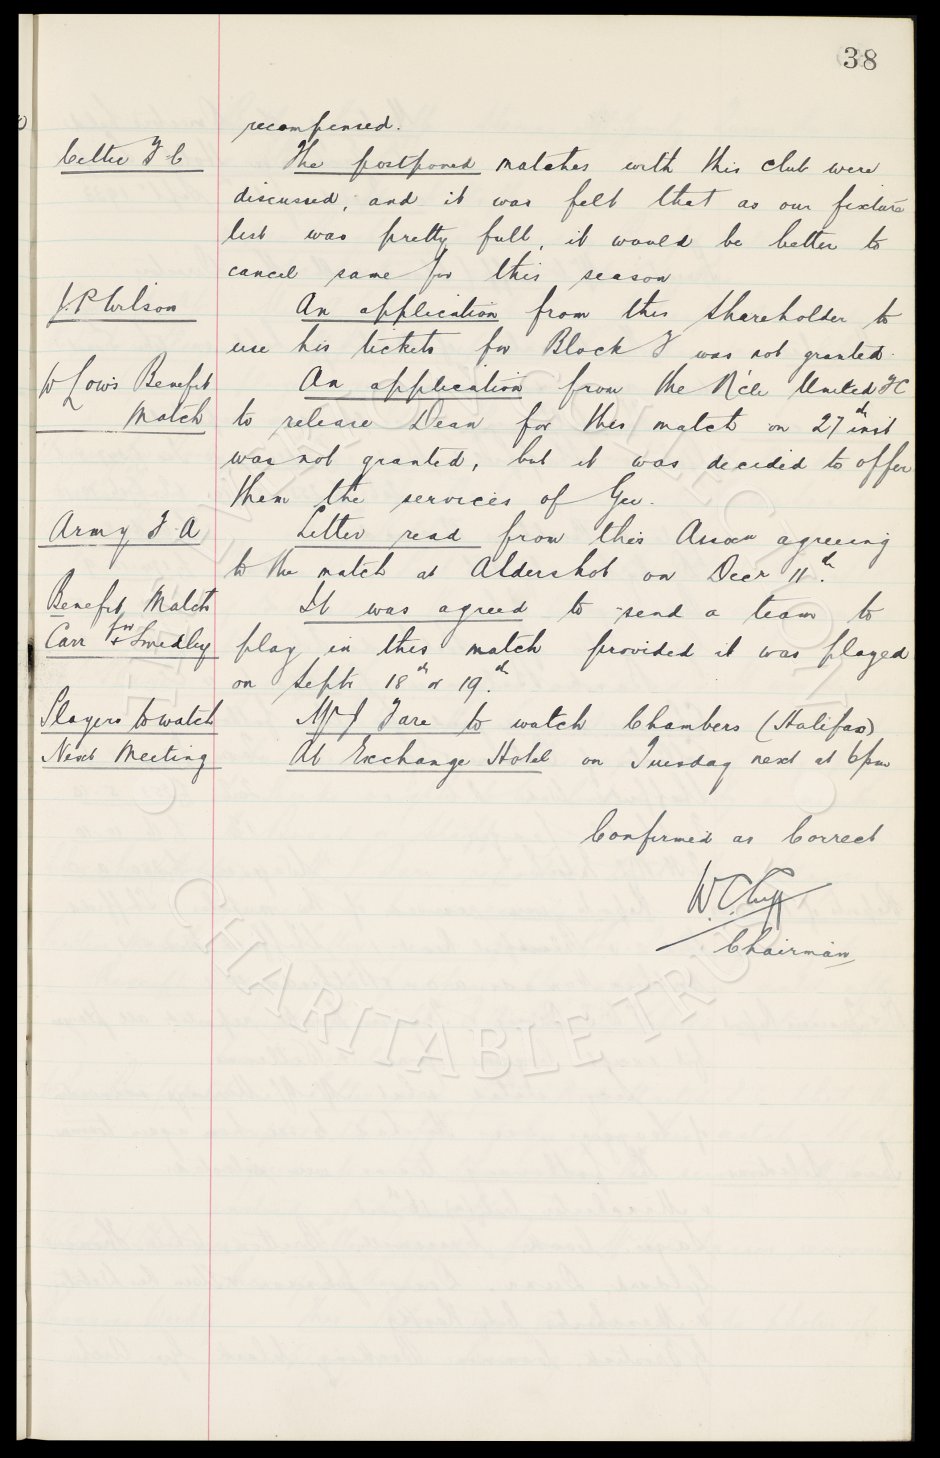 38
recompensed.
Celtic F C The postponed matches with this club were
discussed, and it was felt that as our fixture
list was pretty full, it would be better to
cancel same for this season
J. P Wilson An application from this shareholder to
use his tickets for Block F was not granted.
W Low's Benefit An application from the N'cle United FC
Match to release Dean for this match on 27th inst
was not granted, but it was decided to offer
them the services of Gee.
Army F A Letter read from this Assocn agreeing
to the match at Aldershot on Decr 11th.
Benefit Match It was agreed to send a team to
Carr for + Smedley play in this match provided it was played
on Septr 18th or 19th.
Players to watch Mr J Fare to watch Chambers (Halifax)
Next Meeting At Exchange Hotel on Tuesday next at 6pm
Confirmed as Correct
W. C. Cuff
Chairman
EVERTON COLLECTION
CHARITABLE TRUST
THE